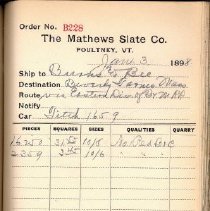 Order No. B228
The Mathews Slate Co.
POULTNEY, VT.
June 3 1898
Ship to Burns & Bee
Destination Beverly Farms Mass
Route via Eastern Div of B. & M. RR
Notify
Car Fitch 1659
PIECES SQUARES SIZES QUALITIES QUARRY
10/8
2359 10/6